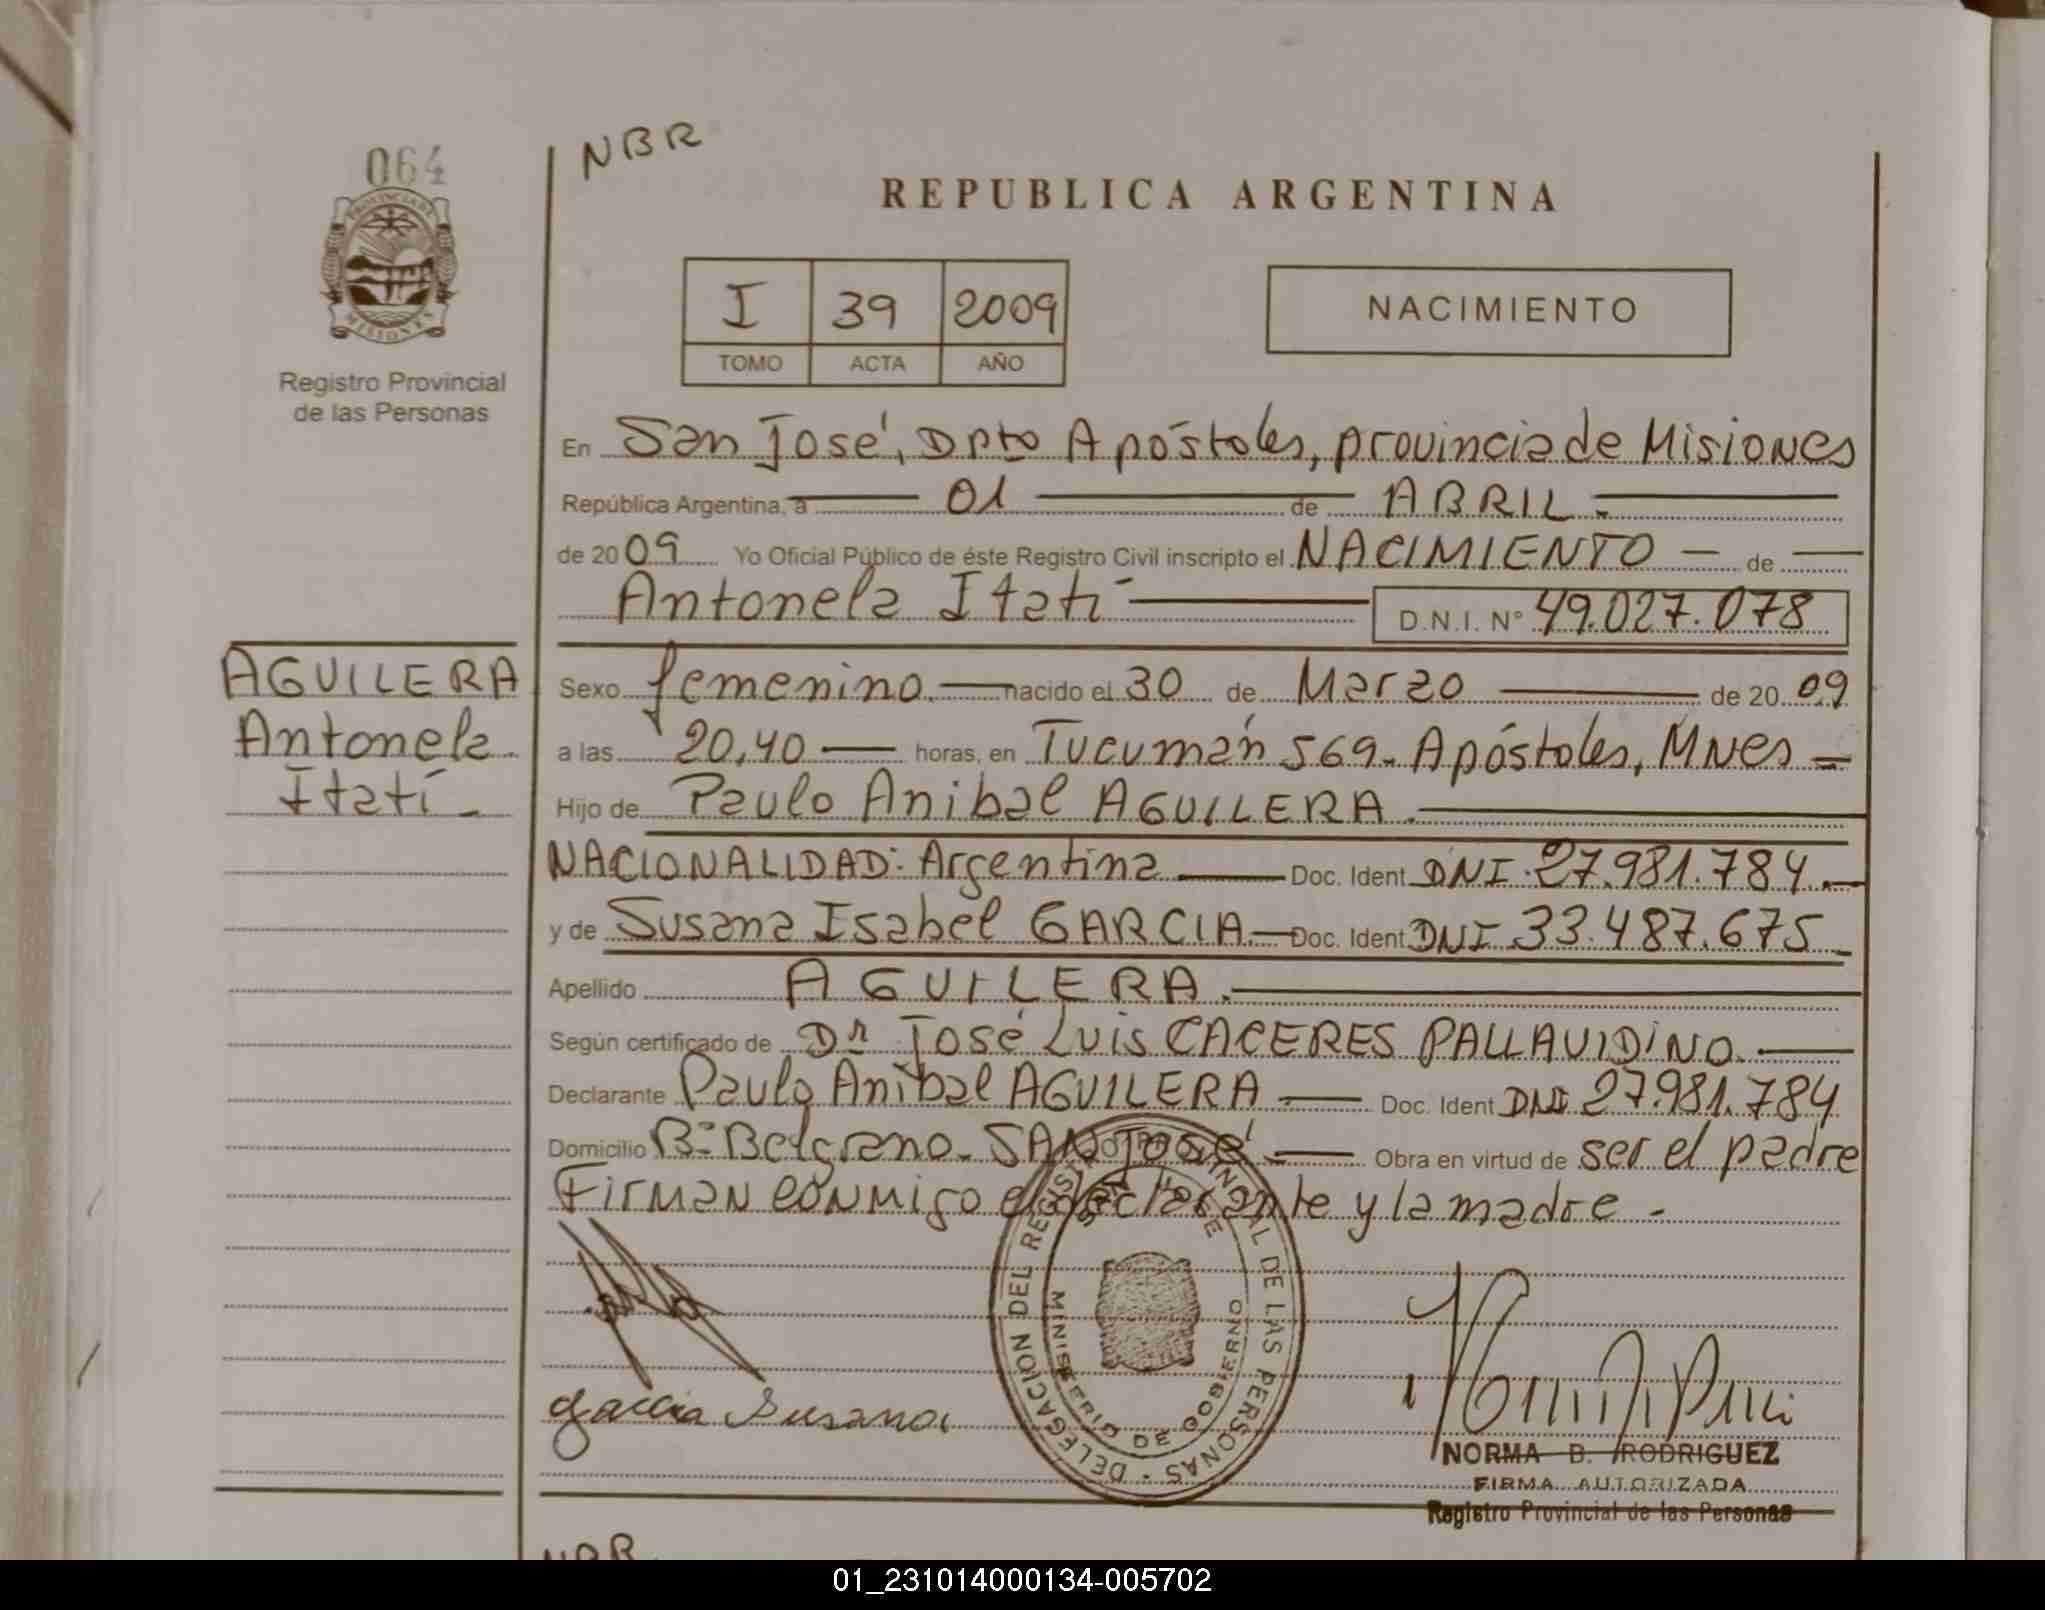 064
NBR
PROVINCIA DE
MISIONES
Registro Provincial
de las Personas
REPUBLICA ARGENTINA
I 39 2009
TOMO ACTA AÑO
NACIMIENTO
En San José, Dpto Apóstoles, provincia de Misiones
República Argentina, a 01 de ABRIL.
de 2009 Yo Oficial Público de éste Registro Civil inscripto el NACIMIENTO de
Antonela Itatí D.N.I. Nº 49.027.078
AGUILERA
Antonela
Itatí
Sexo femenino. nacido el 30 de Marzo de 2009
a las 20,40 horas, en Tucumán 569. Apóstoles, Mnes
Hijo de Paulo Anibal AGUILERA.
NACIONALIDAD: Argentina Doc. Ident DNI. 27.981.784.
y de Susana Isabel GARCIA Doc. Ident DNI 33.487.675
Apellido AGUILERA.
Según certificado de Dr José Luis CACERES PALLAVIDINO.
Declarante Paulo Anibal AGUILERA Doc. Ident DNI 27.981.784
Domicilio Bº Belgrano. SAN José Obra en virtud de ser el padre
Firman conmigo el declarante y la madre.
DELEGACION DEL REGISTRO PROVINCIAL DE LAS PERSONAS
SAN JOSE
MINISTERIO DE GOBIERNO
Garcia Susana
NORMA B. RODRIGUEZ
FIRMA AUTORIZADA
Registro Provincial de las Personas
01_231014000134-005702